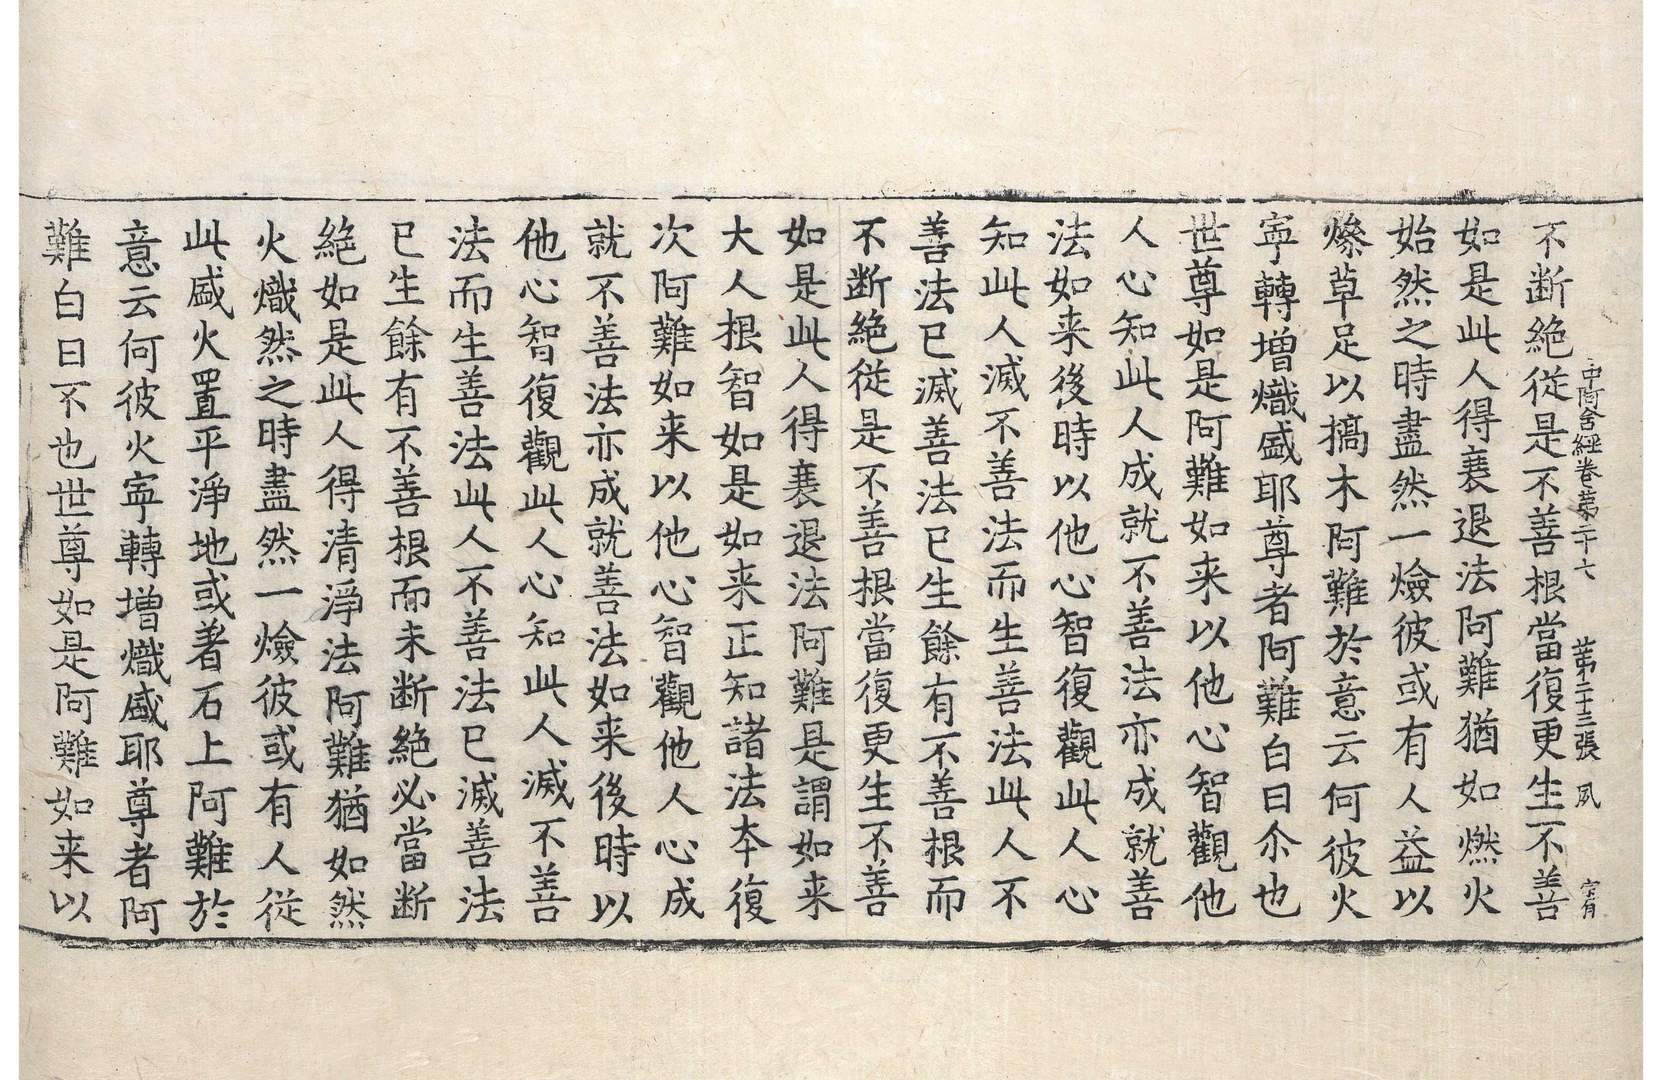 中阿含經卷第二十七 第二十三張 夙
不断絶從是不善根當復更生不善
如是此人得衰退法阿難猶如燃火
始然之時盡然一燄彼或有人益以
燥草足以槁木阿難於意云何彼火
寕轉增熾盛耶尊者阿難白曰尒也
世尊如是阿難如来以他心智觀他
人心知此人成就不善法亦成就善
法如来後時以他心智復觀此人心
知此人滅不善法而生善法此人不
善法已滅善法已生餘有不善根而
不断絶從是不善根當復更生不善
如是此人得衰退法阿難是謂如来
大人根智如是如来正知諸法本復
次阿難如来以他心智觀他人心成
就不善法亦成就善法如来後時以
他心智復觀此人心知此人滅不善
法而生善法此人不善法已滅善法
已生餘有不善根而未断絶必當断
絶如是此人得清淨法阿難猶如然
火熾然之時盡然一燄彼或有人從
此盛火置平淨地或著石上阿難於
意云何彼火寕轉增熾盛耶尊者阿
難白曰不也世尊如是阿難如来以